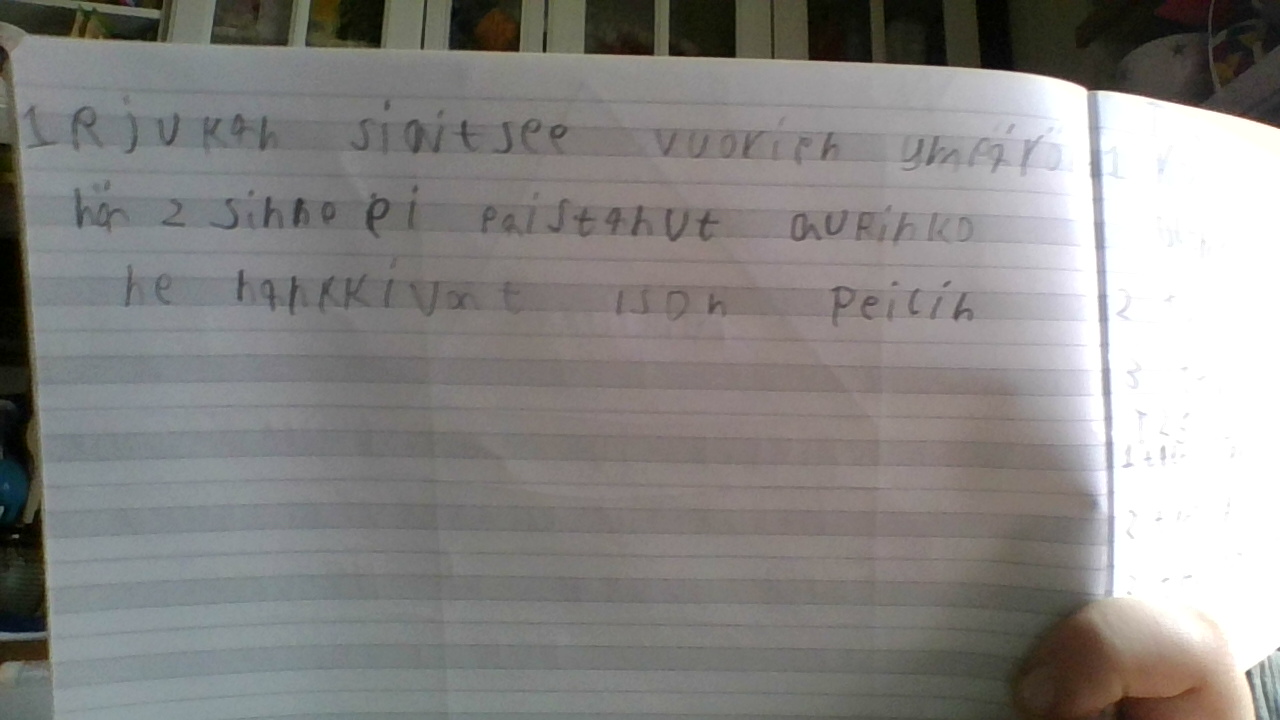 1 Rjukan siaitsee vuorien ympärö
hän 2 sinne ei paistanut auRinko
he hankkivat ison peilin